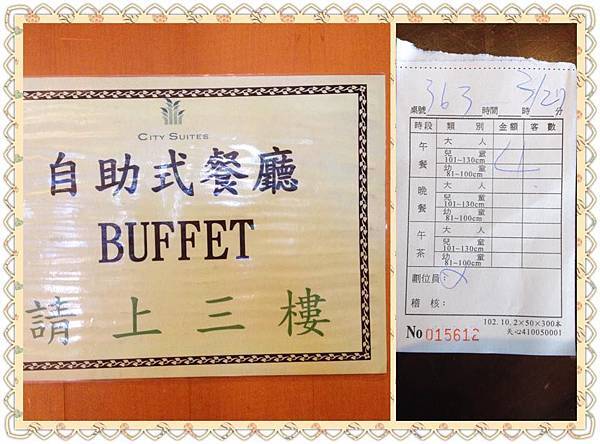 CITY SUITES
自助式餐廳
BUFFET
請上三樓
桌號 363 時間 3/27 時 分
時段 類別 金額 客數
午餐 大人 4
兒童 101~130cm
幼童 81~100cm
晚餐 大人
兒童 101~130cm
幼童 81~100cm
午茶 大人
兒童 101~130cm
幼童 81~100cm
劃位員:
稽核:
102.10.2×50×300本
No 015612 天心410050001